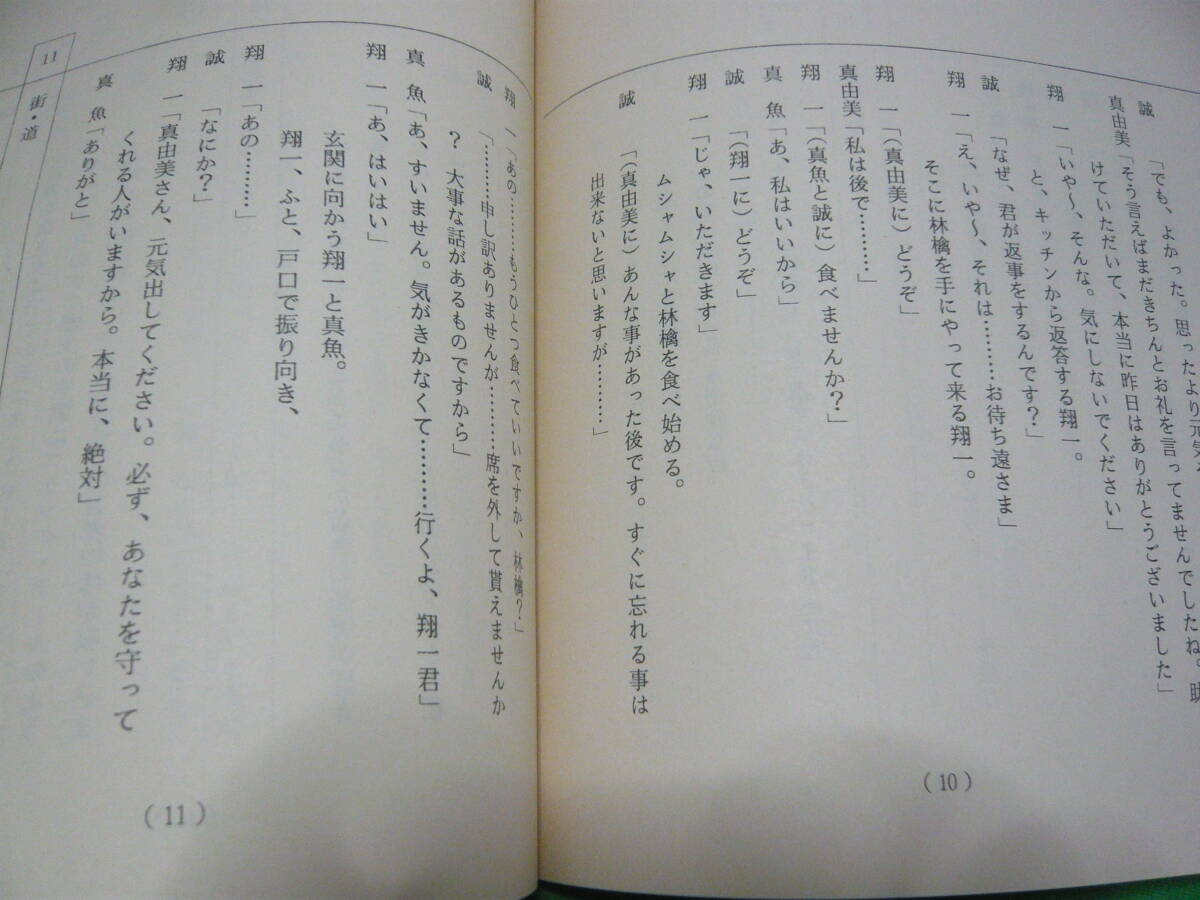 誠「でも、よかった。思ったより元気
真由美「そう言えばまだきちんとお礼を言ってませんでしたね。助
けていただいて、本当に昨日はありがとうございました」
翔一「いや〜、そんな。気にしないでください」
と、キッチンから返答する翔一。
誠「なぜ、君が返事をするんです？」
翔一「え、いや〜、それは…………お待ち遠さま」
そこに林檎を手にやって来る翔一。
翔一「（真由美に）どうぞ」
真由美「私は後で…………」
翔一「（真魚と誠に）食べませんか？」
真魚「あ、私はいいから」
誠「（翔一に）どうぞ」
翔一「じゃ、いただきます」
ムシャムシャと林檎を食べ始める。
誠「（真由美に）あんな事があった後です。すぐに忘れる事は
出来ないと思いますが…………」
（10）
翔一「あの…………もうひとつ食べていいですか、林檎？」
誠「…………申し訳ありませんが…………席を外して貰えませんか
？　大事な話があるものですから」
真魚「あ、すいません。気がきかなくて…………行くよ、翔一君」
翔一「あ、はいはい」
玄関に向かう翔一と真魚。
翔一、ふと、戸口で振り向き、
翔一「あの…………」
誠「なにか？」
翔一「真由美さん、元気出してください。必ず、あなたを守って
くれる人がいますから。本当に、絶対」
真魚「ありがと」
11 街・道
（11）